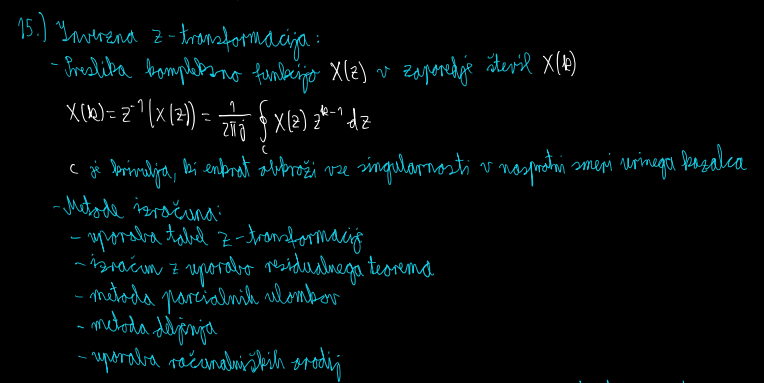 15.) Inverzna z-transformacija:
- Preslika kompleksno funkcijo X(z) v zaporedje števil X(k)
X(k) = z⁻¹(X(z)) = 1/2πj ∮c X(z) z^k-1 dz
c je krivulja, ki enkrat obkroži vse singularnosti v nasprotni smeri urinega kazalca
- Metode izračuna:
- uporaba tabel z-transformacije
- izračun z uporabo residualnega teorema
- metoda parcialnih ulomkov
- metoda deljenja
- uporaba računalniških orodij